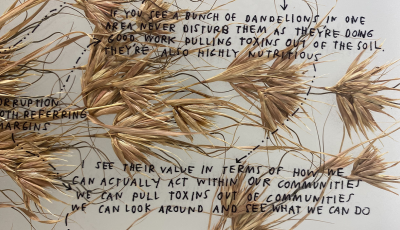 IF YOU SEE A BUNCH OF DANDELIONS IN ONE
AREA NEVER DISTURB THEM AS THEY'RE DOING
GOOD WORK PULLING TOXINS OUT OF THE SOIL
THEY'RE ALSO HIGHLY NUTRITIOUS
ORRUPTION
OTH REFERRING
MARGINS
I SEE THEIR VALUE IN TERMS OF HOW WE
CAN ACTUALLY ACT WITHIN OUR COMMUNITIES
WE CAN PULL TOXINS OUT OF COMMUNITIES
WE CAN LOOK AROUND AND SEE WHAT WE CAN DO